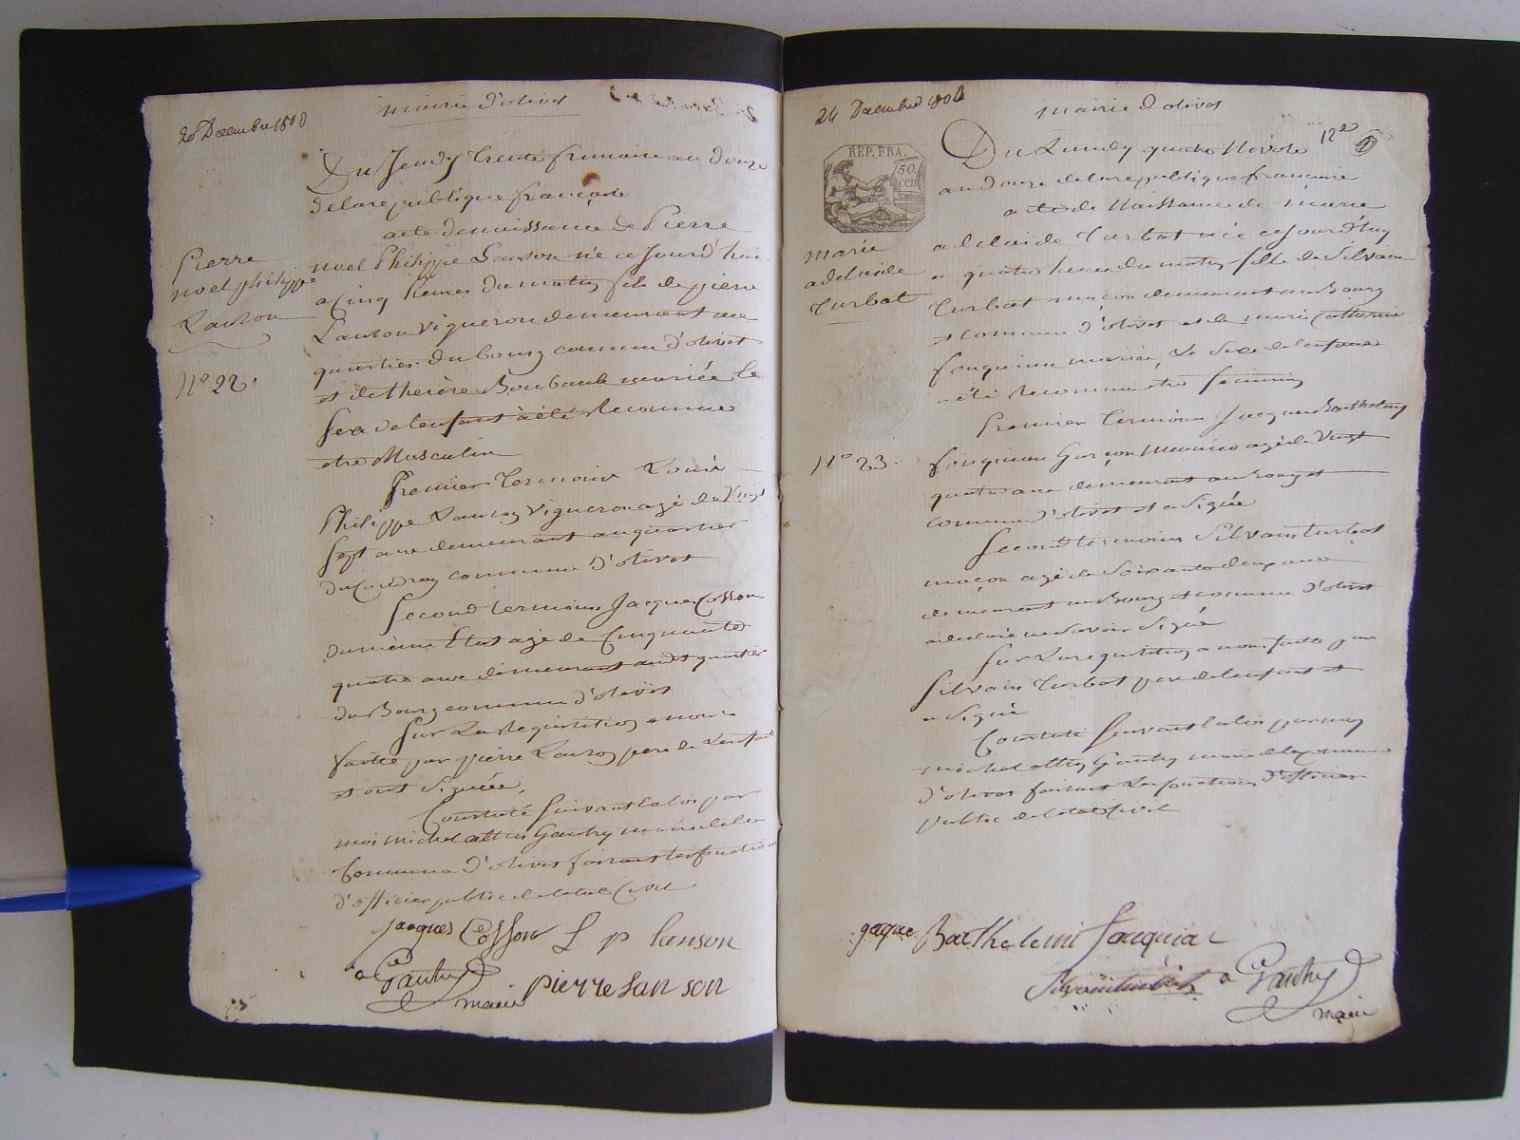 20 Decembre 1803
mairie d'olivet
Du Jeudy trente frimaire an douze
de la republique française
acte de naissance de Pierre
noel Philippe Lanson né ce jourd'hui
a Cinq heures du matin fils de pierre
Lanson vigneron demeurant au
quartier du bourg commune d'olivet
et de therèse Boubault mariée le
sexe de lenfant à été Reconnu
etre Masculin
Premier temoins Louis
Philippe Lanson vigneron agé de vingt
sept ans demeurant au quartier
du commune d'olivet
Second temoins Jacque Cosson
du même Etat agé de Cinquante
quatre ans demeurant audt quartier
du Bourg commune d'olivet
Sur La Requisition a nous
faitte par pierre Lanson pere de Lenfant
et ont Signée,
Constaté Suivant la loi par
moi michel Gautry maire de la
Commune d'olivet faisant les fonctions
d'officier public de letat Civil
Pierre
noel philippe
Lanson
N° 22.
jacques Cosson L p lanson
a Gautry
maire pierre lanson
24 Decembre 1803
mairie d olivet
12e
REP. FRA.
50
cen
Du Lundy quatre Nivose
an douze de la republique française
acte de Naissance de marie
adelaide Turbat née ce jourd'huy
a quatre heures du matin fille de Silvain
Turbat maçon demeurant au Bourg
et commune d'olivet et de marie Catherine
fouquiau mariée, Le Sexe de lenfant
a été reconnu etre feminin
Premier temoins Jacque Barthelemy
fouquiau Garçon Meunier agé de Vingt
quatre ans demeurant au Bourg et
commune d'olivet et a Signée
Second temoins Silvain turbat
maçon agé de Soixante deux ans
demeurant au Bourg et commune d'olivet
a declaré ne Savoir Signé
Sur La requisition a nous faitte par
Silvain turbat pere de lenfant et
a Signé
Constaté Suivant la loi par moy
michel Gautry maire de la Commune
d'olivet faisant Les fonctions d'officier
public de letat Civil
marie
adelaide
Turbat
N° 23.
gaque Barthelemi fouquiau
Silvain turbat a Gautry
maire